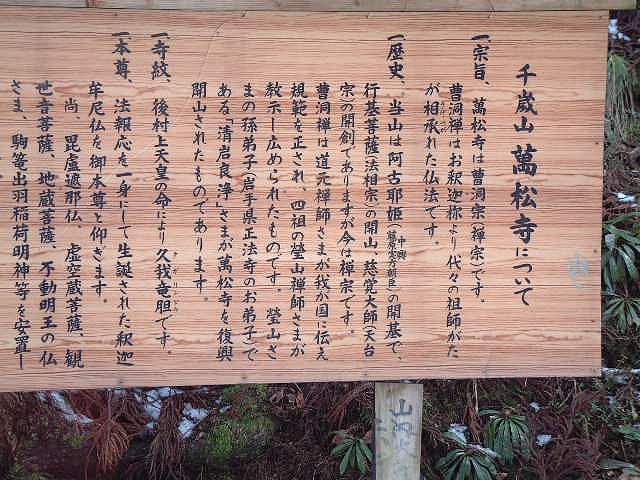 千歳山 萬松寺について
一宗旨、萬松寺は曹洞宗(禅宗)です。
曹洞禅はお釈迦様より代々の祖師がた
が相承された仏法です。
一歴史、当山は阿古耶姫(藤原豊充朝臣)の開基で、
中興
行基菩薩(法相宗)の開山、慈覚大師(天台
宗)の開創でありますが今は禅宗です。
曹洞禅は道元禅師さまが我か国に伝え
規範を正され、四祖の瑩山禅師さまが
教示し広められたものです。瑩山さ
まの孫弟子(岩手県正法寺のお弟子)で
ある「清岩良浄」さまが萬松寺を復興
開山されたものであります。
一寺紋、後村上天皇の命により久我竜胆です。
一本尊、法報応を一身にして生誕された釈迦
牟尼仏を御本尊と仰ぎます。
尚、毘盧遮那仏、虚空蔵菩薩、観
世音菩薩、地蔵菩薩、不動明王の仏
さま、駒篭出羽稲荷明神等を安置し
山